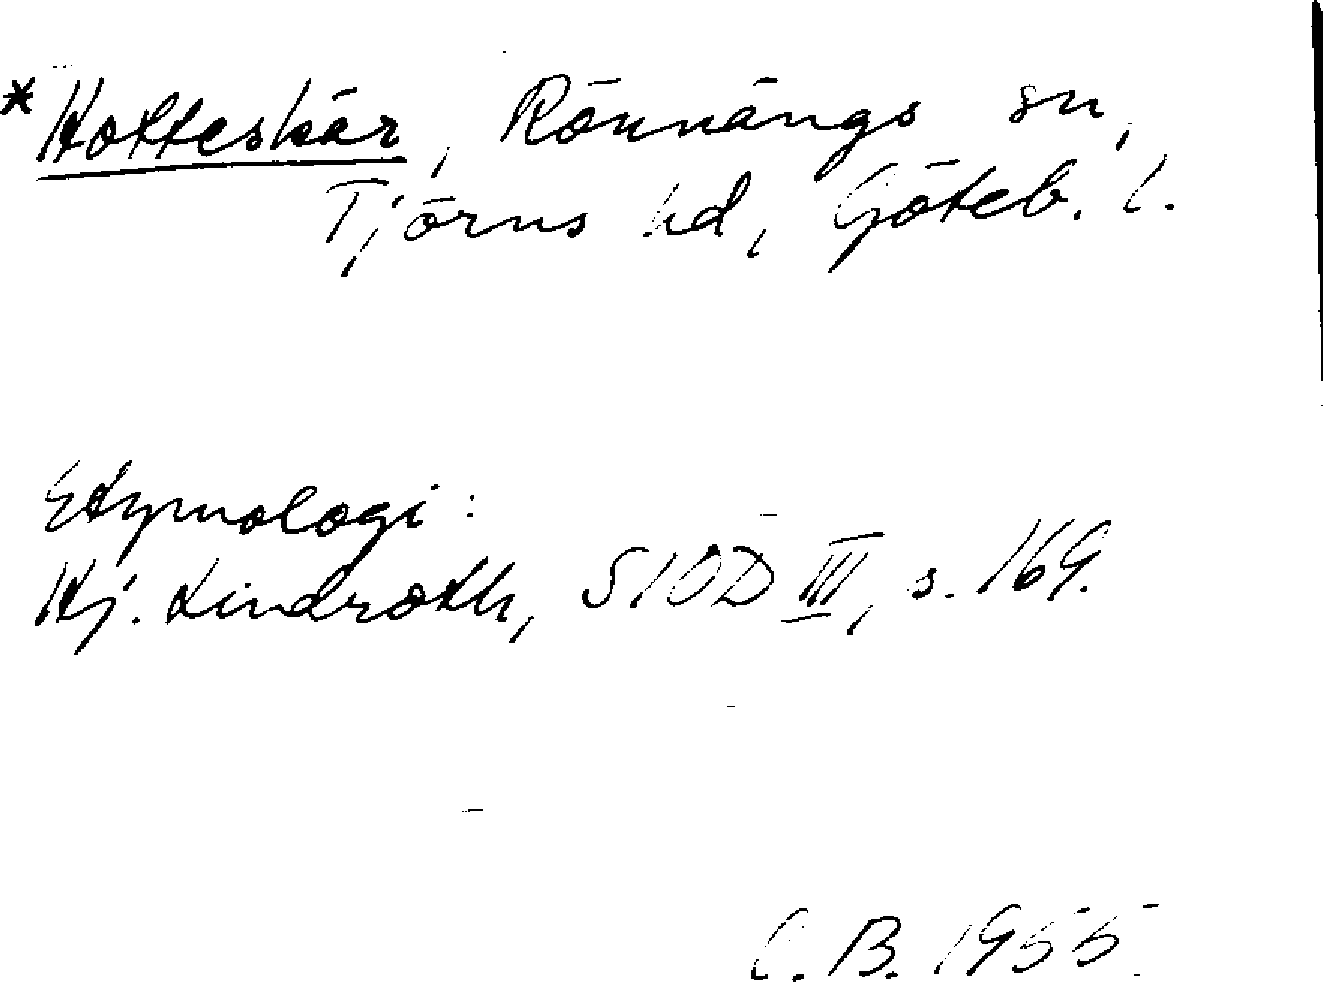 * Hotteskär, Rönnängs sn,
Tjörns hd, Göteb. l.
Etymologi:
Hj. Lindroth, SIOD III, s. 169.
C. B. 1955.